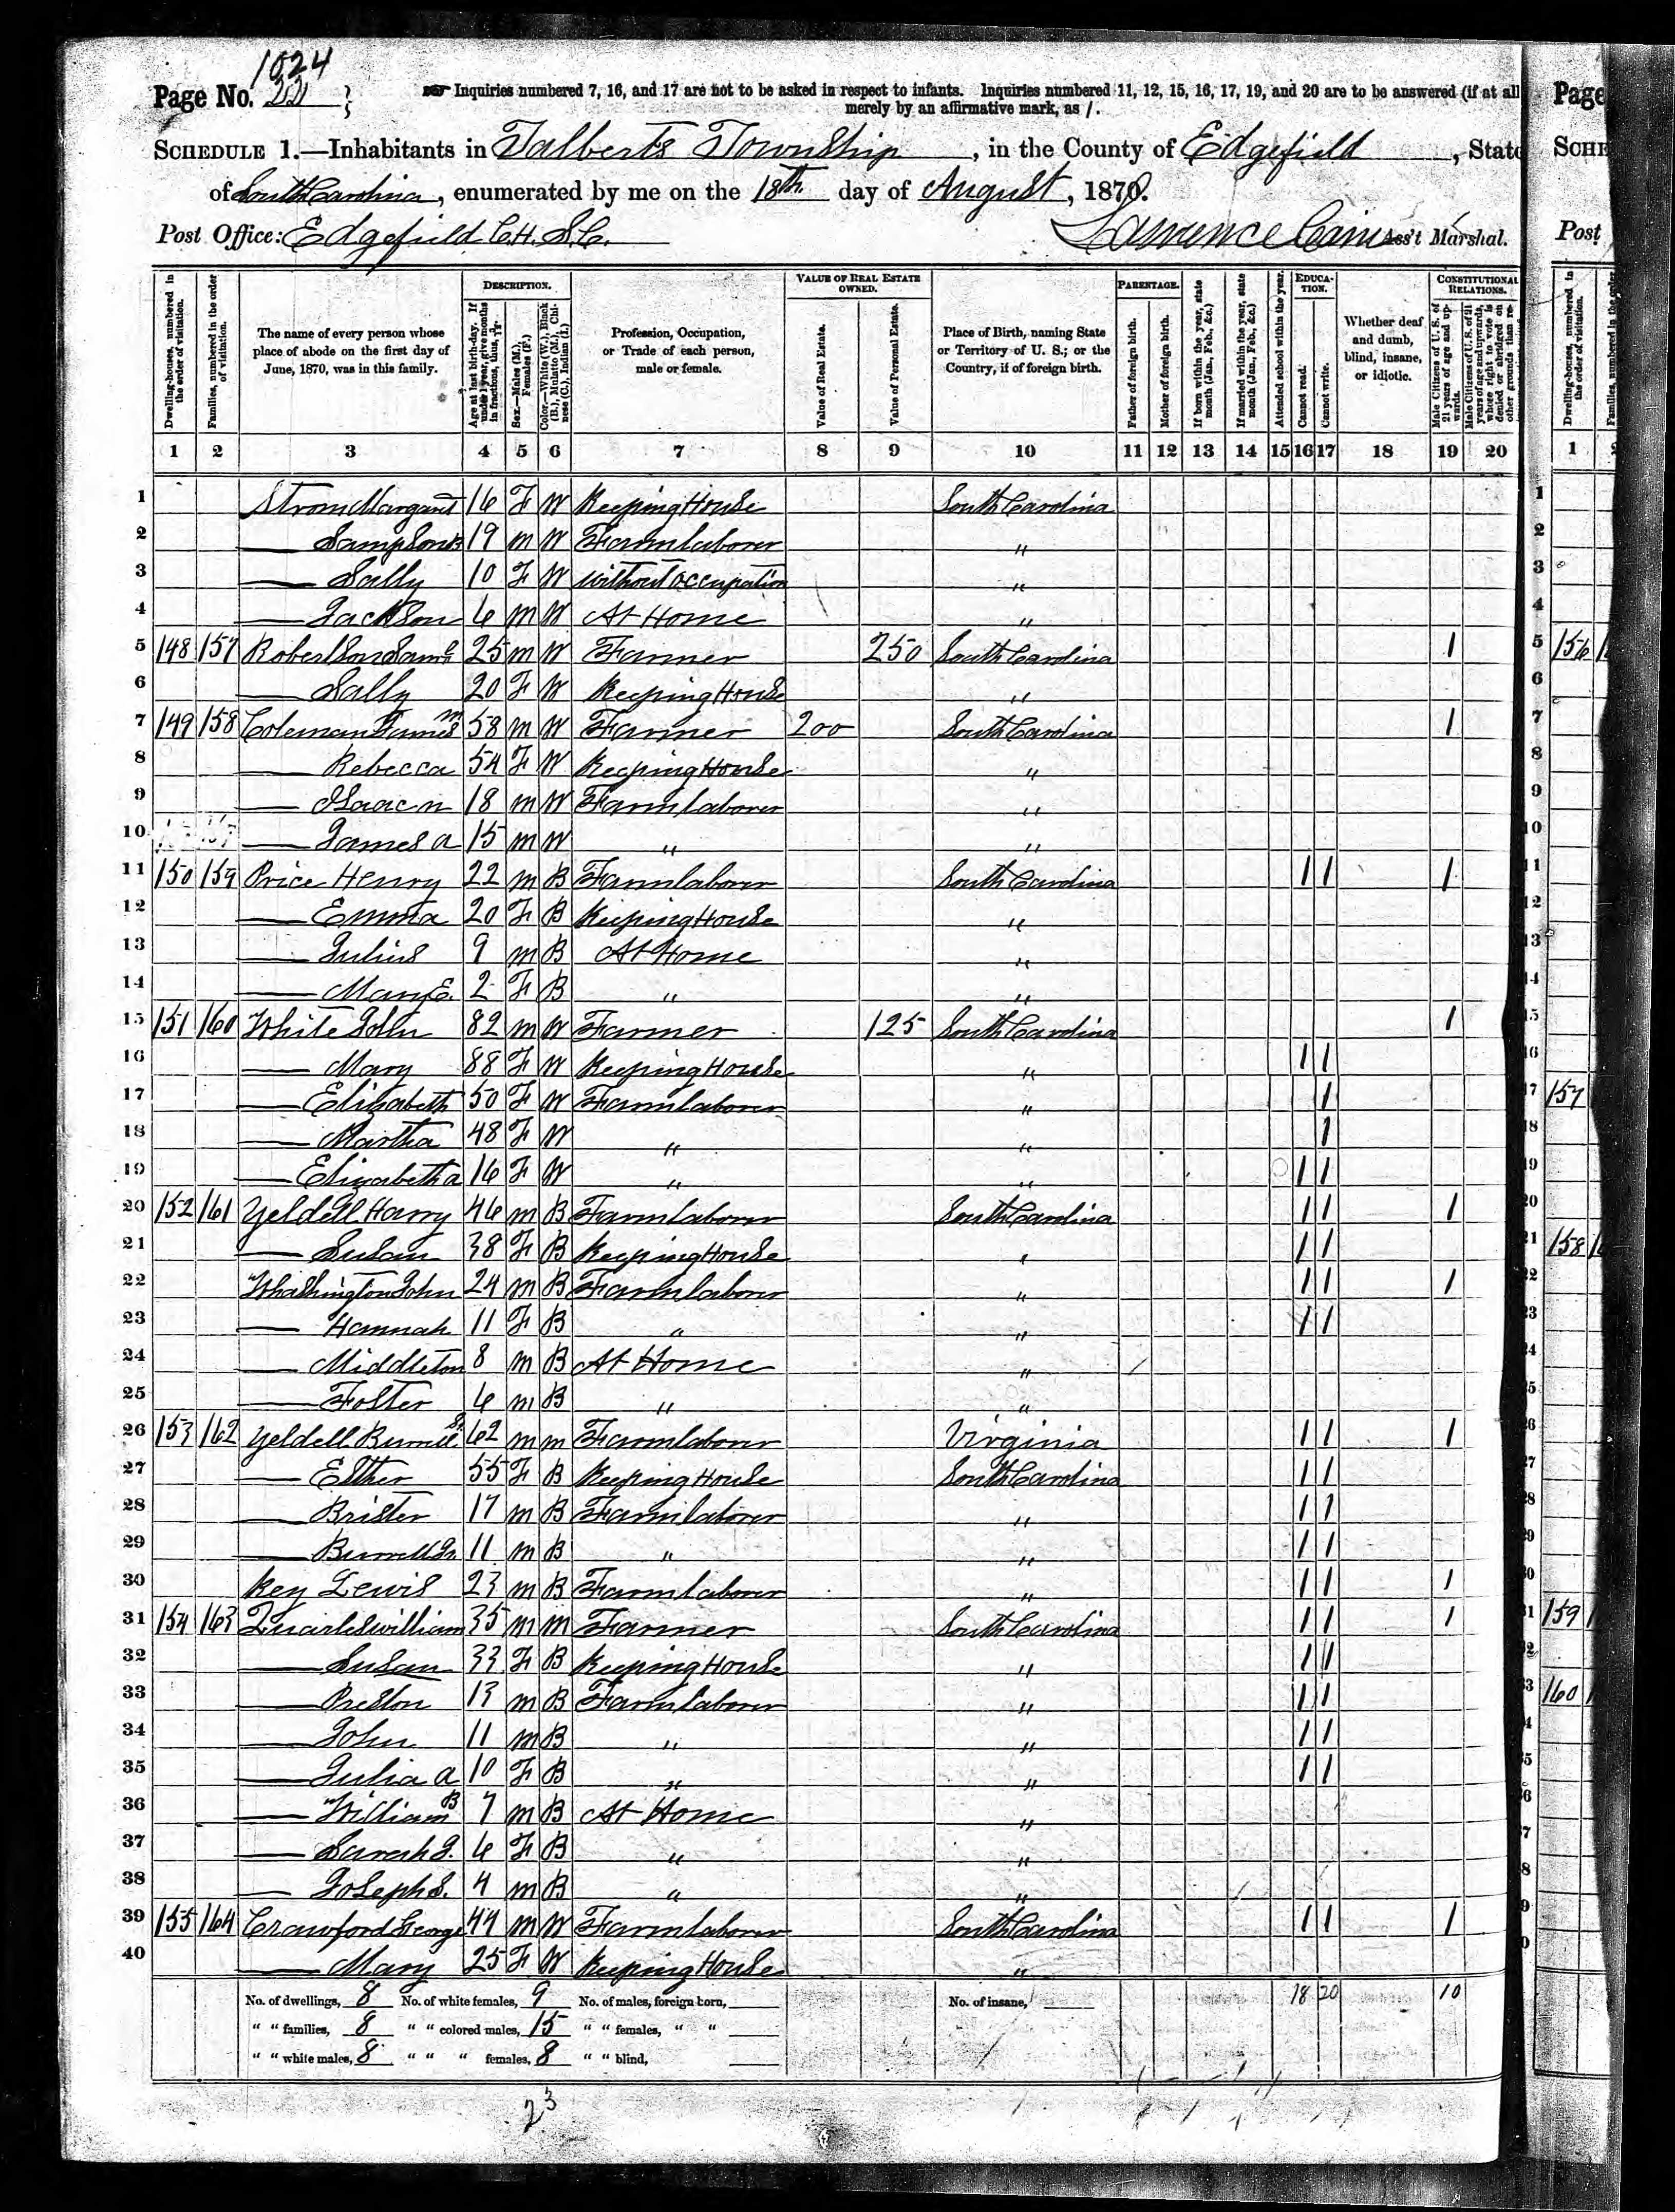 1024
Page No. 22
Inquiries numbered 7, 16, and 17 are not to be asked in respect to infants. Inquiries numbered 11, 12, 15, 16, 17, 19, and 20 are to be answered (if at all)
merely by an affirmative mark, as /.
SCHEDULE 1.—Inhabitants in Talberts Township, in the County of Edgefield, State
of South Carolina, enumerated by me on the 18th day of August, 1870.
Post Office: Edgefield C.H. S.C. Lawrence Cain Ass't Marshal.
Dwelling-houses, numbered in the order of visitation.
Families, numbered in the order of visitation.
The name of every person whose place of abode on the first day of June, 1870, was in this family.
DESCRIPTION.
Age at last birth-day. If under 1 year, give months in fractions, thus,
Sex.—Males (M.), Females (F.)
Color.—White (W.), Black (B.), Mulatto (M.), Chinese (C.), Indian (I.)
Profession, Occupation, or Trade of each person, male or female.
VALUE OF REAL ESTATE OWNED.
Value of Real Estate.
Value of Personal Estate.
Place of Birth, naming State or Territory of U. S.; or the Country, if of foreign birth.
PARENTAGE.
Father of foreign birth.
Mother of foreign birth.
If born within the year, state month (Jan., Feb., &c.)
If married within the year, state month (Jan., Feb., &c.)
Attended school within the year.
EDUCATION.
Cannot read.
Cannot write.
Whether deaf and dumb, blind, insane, or idiotic.
CONSTITUTIONAL RELATIONS.
Male Citizens of U. S. of 21 years of age and upwards.
Male Citizens of U. S. of 21 years of age and upwards, whose right to vote is denied or abridged on other grounds than re-
1 2 3 4 5 6 7 8 9 10 11 12 13 14 15 16 17 18 19 20
1 Strom Margaret 16 F W Keeping House South Carolina
2 — Sampson 19 M W Farm laborer "
3 — Sally 10 F W Without occupation "
4 — Jackson 6 M W At Home "
5 148 157 Robertson Saml 25 M W Farmer 250 South Carolina 1
6 — Sally 20 F W Keeping House "
7 149 158 Coleman James M 58 M W Farmer 200 South Carolina 1
8 — Rebecca 54 F W Keeping House "
9 — Isaac N 18 M W Farm laborer "
10 — James A 15 M W " "
11 150 159 Price Henry 22 M B Farm laborer South Carolina 1 1 1
12 — Emma 20 F B Keeping House "
13 — Julius 9 M B At Home "
14 — Mary E. 2 F B " "
15 151 160 White John 82 M W Farmer 125 South Carolina 1
16 — Mary 88 F W Keeping House " 1 1
17 — Elizabeth 50 F W Farm laborer " 1
18 — Martha 48 F W " " 1
19 — Elizabeth A 16 F W " " 1 1
20 152 161 Yeldell Harry 46 M B Farm laborer South Carolina 1 1 1
21 — Susan 38 F B Keeping House " 1 1
22 Whashington John 24 M B Farm laborer " 1 1 1
23 — Hannah 11 F B " " 1 1
24 — Middleton 8 M B At Home "
25 — Foster 6 M B " "
26 153 162 Yeldell Burrell Sr 62 M M Farm laborer Virginia 1 1 1
27 — Esther 55 F B Keeping House South Carolina 1 1
28 — Brister 17 M B Farm laborer " 1 1
29 — Burrell Jr. 11 M B " " 1 1
30 Key Lewis 23 M B Farm laborer " 1 1 1
31 154 163 Quarles William 35 M M Farmer South Carolina 1 1 1
32 — Susan 33 F B Keeping House " 1 1
33 — Preston 13 M B Farm laborer " 1 1
34 — John 11 M B " " 1 1
35 — Julia A 10 F B " " 1 1
36 — William B 7 M B At Home "
37 — Sarah J. 6 F B " "
38 — Joseph S. 4 M B " "
39 155 164 Crawford George 44 M W Farm laborer South Carolina 1 1 1
40 — Mary 25 F W Keeping House "
No. of dwellings, 8 No. of white females, 9 No. of males, foreign born, No. of insane, 18 20 10
" " families, 8 " " colored males, 15 " " females, " "
" " white males, 8 " " " females, 8 " " blind,
23
Page
SCHE
Post
Dwelling-houses, numbered in the order of visitation.
Families, numbered in the order
1
156
157
158
159
160